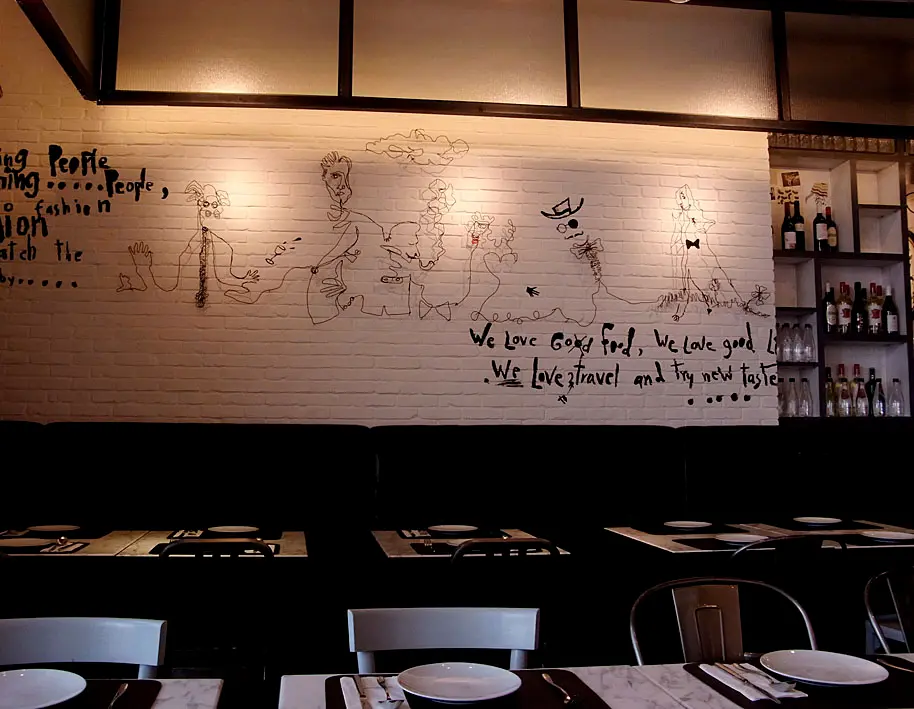 People
.....People,
fashion
the
.....
We Love Good Food, We Love good
We Love travel and try new taste
.....